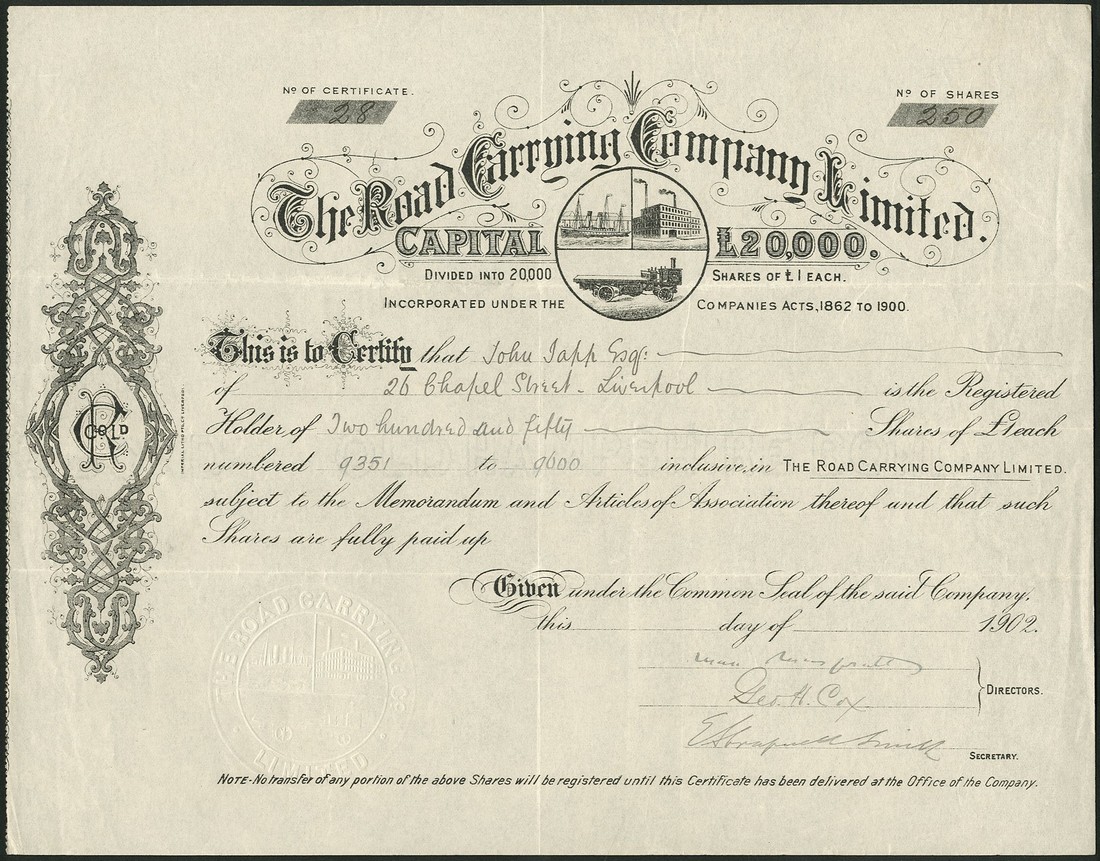 No OF CERTIFICATE.
28
No OF SHARES
250
The Road Carrying Company Limited.
CAPITAL £20,000.
DIVIDED INTO 20,000 SHARES OF £1 EACH.
INCORPORATED UNDER THE COMPANIES ACTS, 1862 TO 1900.
This is to Certify that John Japp Esq:
of 26 Chapel Street - Liverpool is the Registered
Holder of Two hundred and fifty Shares of £1 each
numbered 9351 to 9600 inclusive, in THE ROAD CARRYING COMPANY LIMITED.
subject to the Memorandum and Articles of Association thereof and that such
Shares are fully paid up
Given under the Common Seal of the said Company,
this day of 1902.
Geo. H. Cox
DIRECTORS.
SECRETARY.
THE ROAD CARRYING Co
LIMITED
NOTE - No transfer of any portion of the above Shares will be registered until this Certificate has been delivered at the Office of the Company.